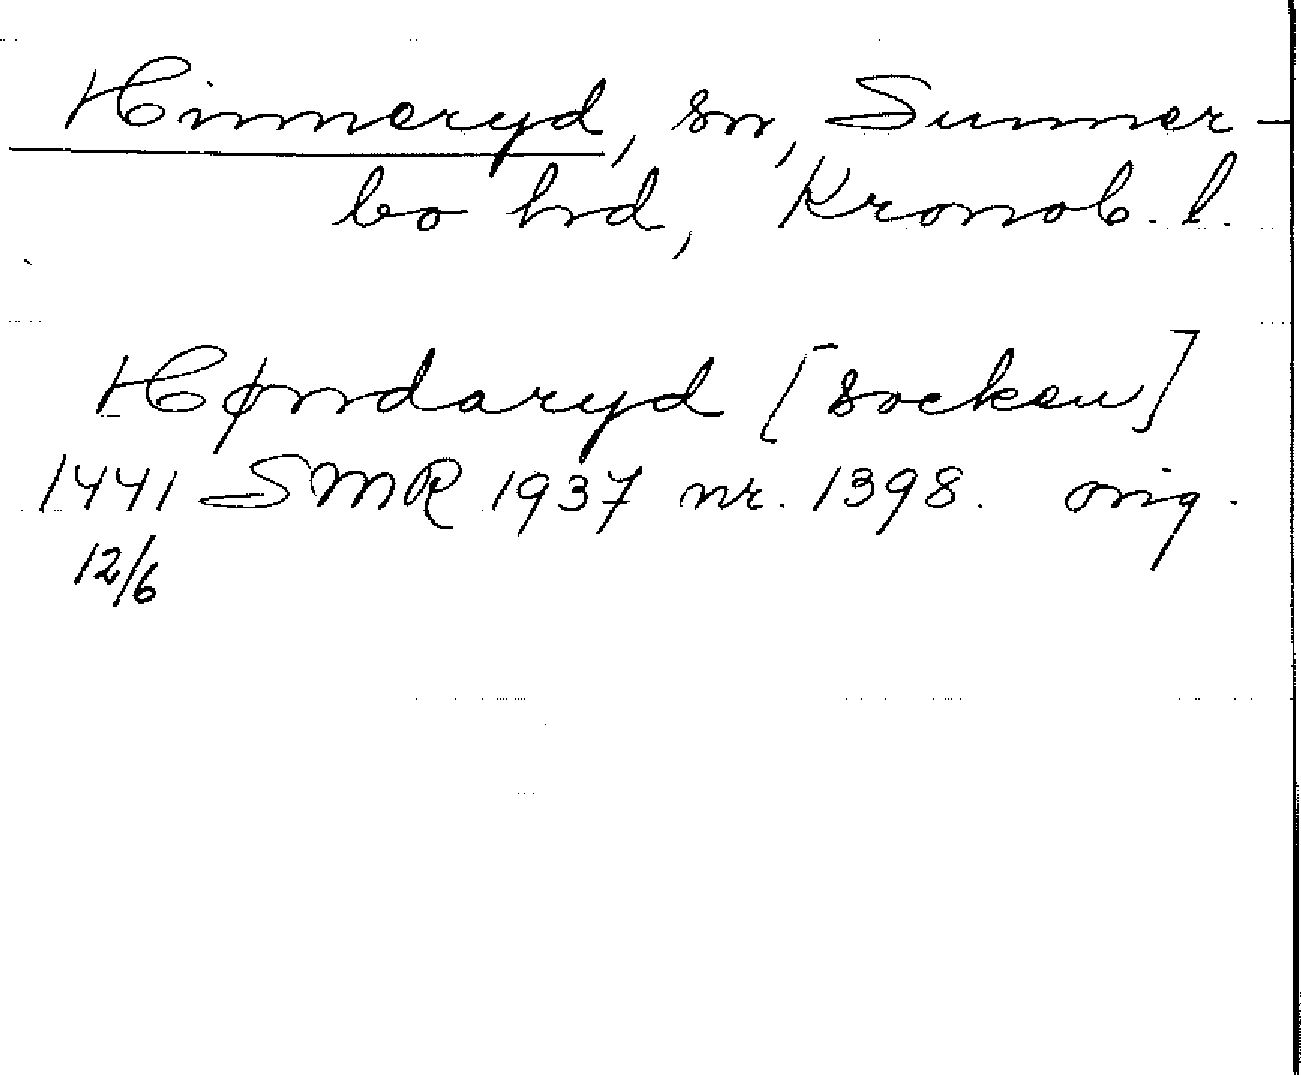 Hinneryd, sn, Sunner-
bo hd, Kronob. l.
Høndaryd [socken]
1441 SMR 1937 nr. 1398. orig.
12/6